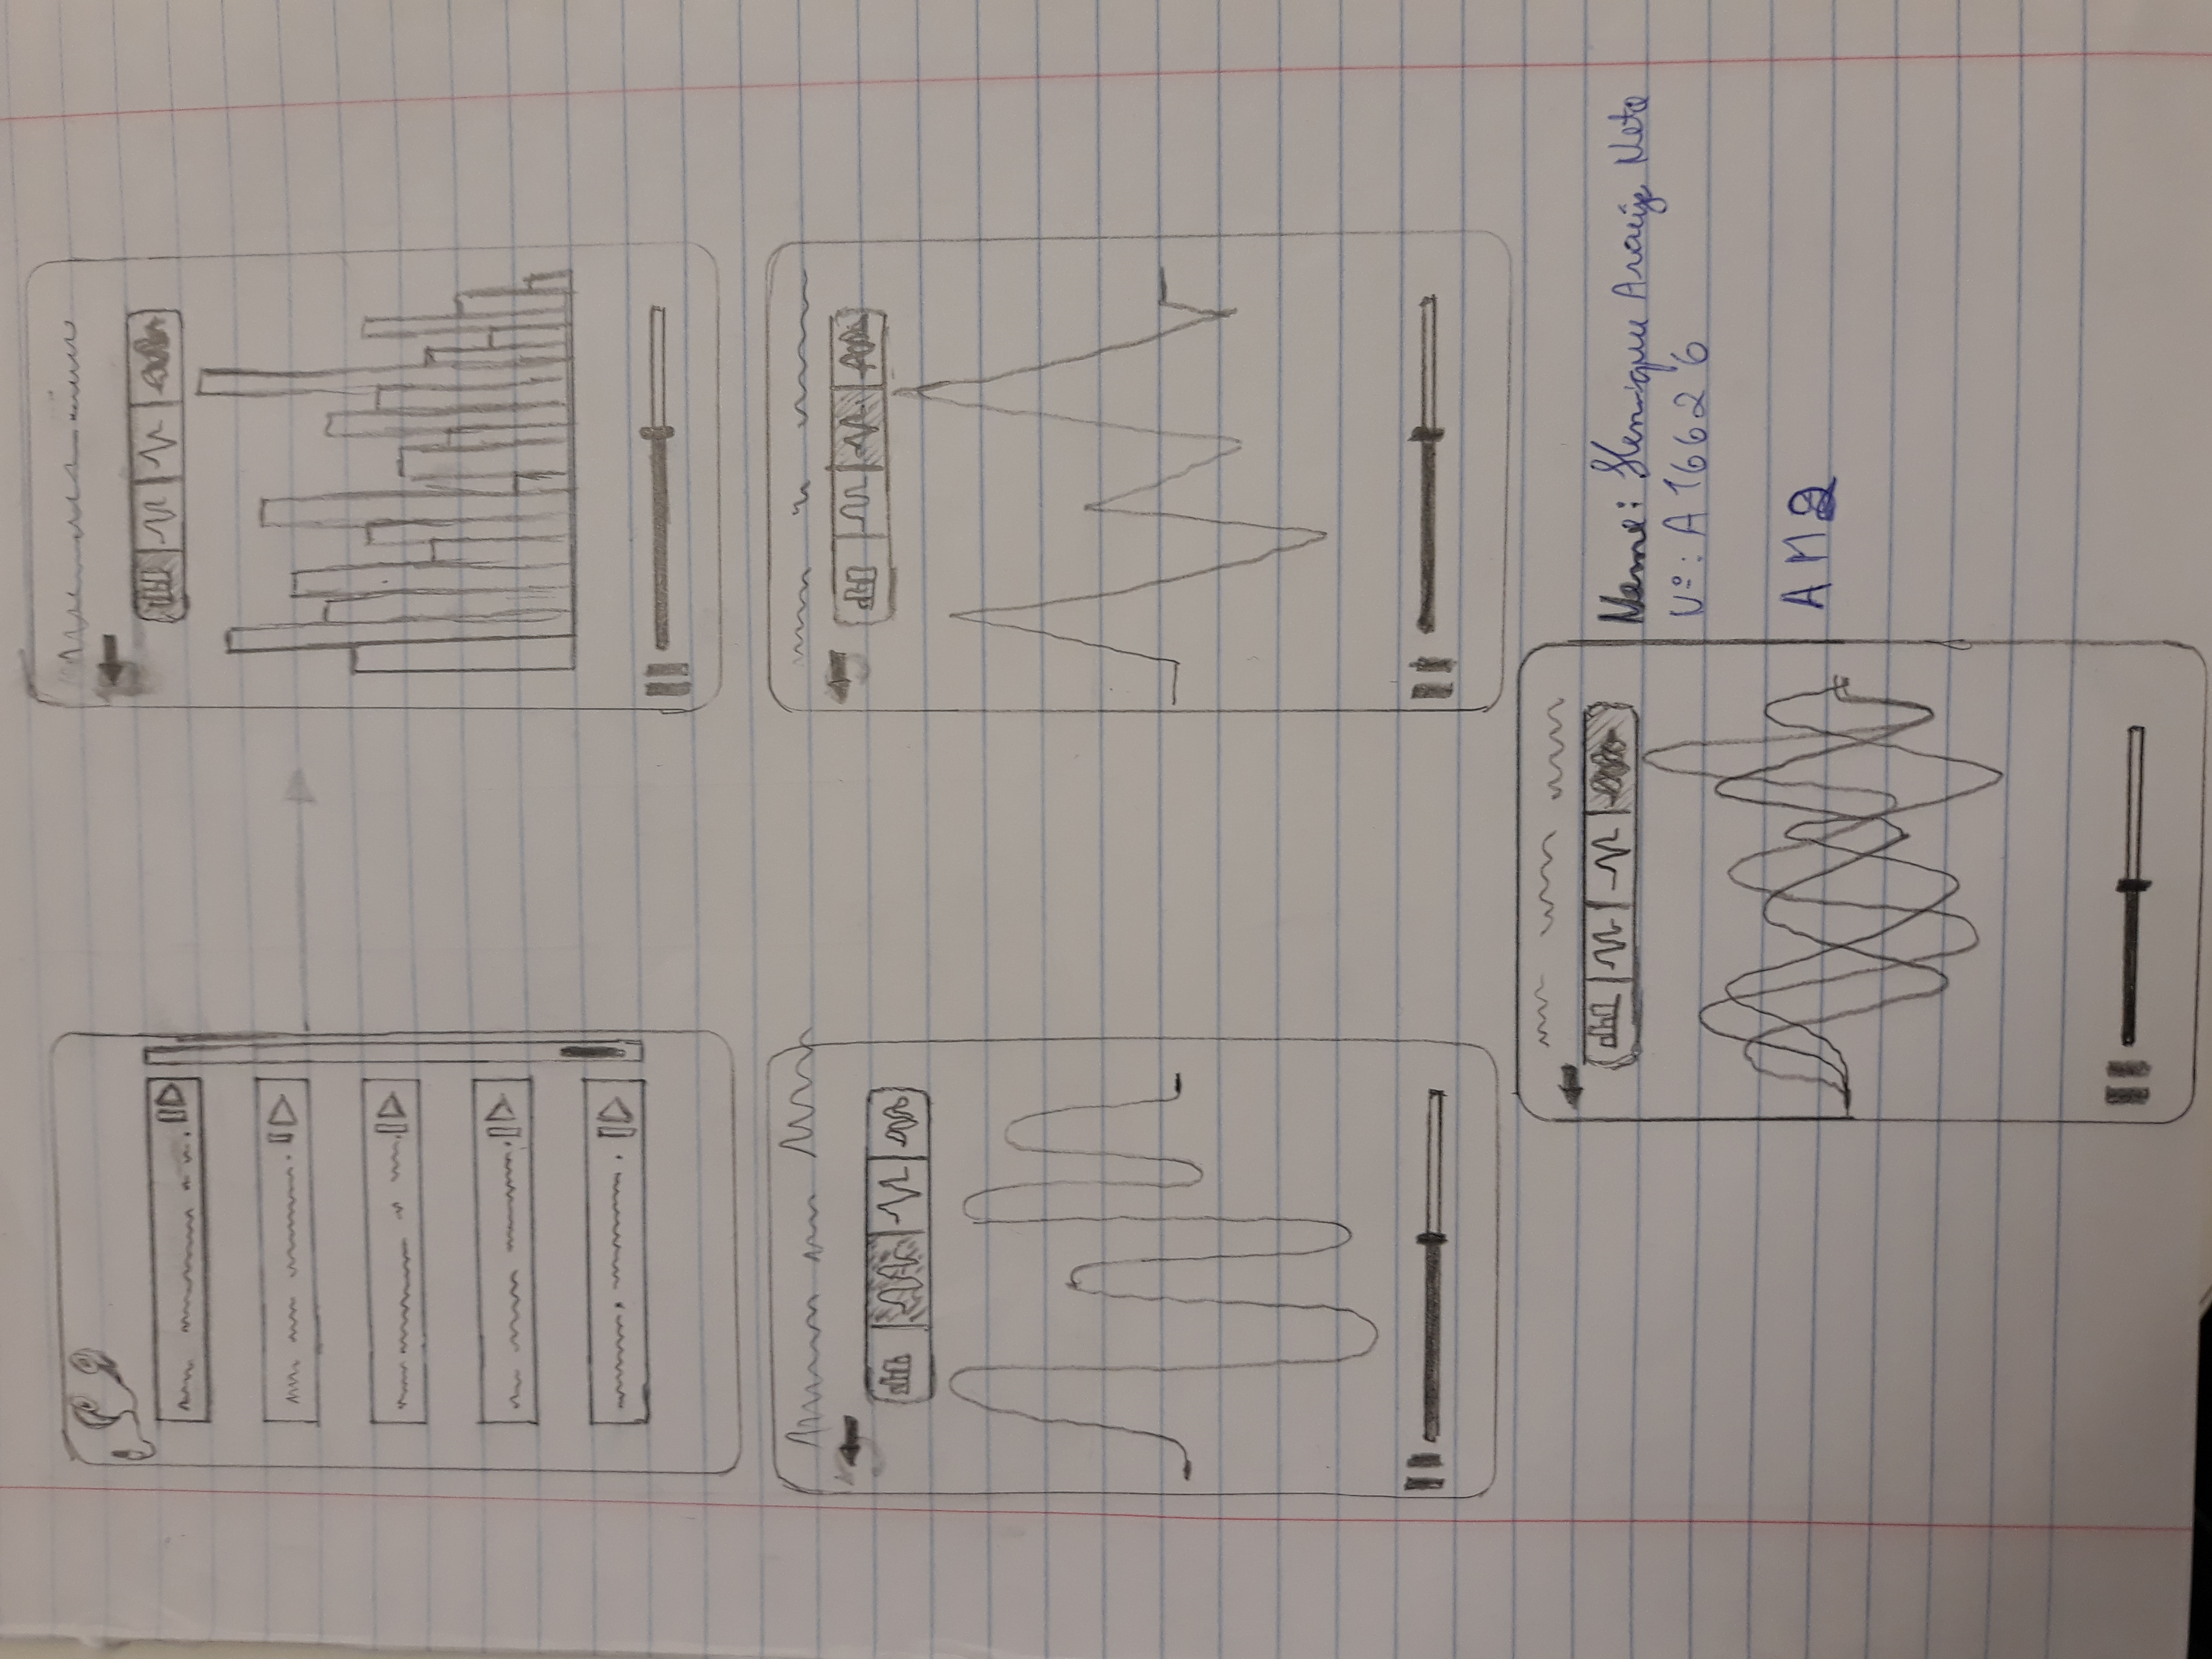 Nome: Henrique Araújo Neto
Nº: A16626
AM2